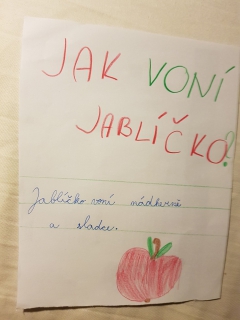 JAK VONÍ
JABLÍČKO?
Jablíčko voní nádherně
a sladce.